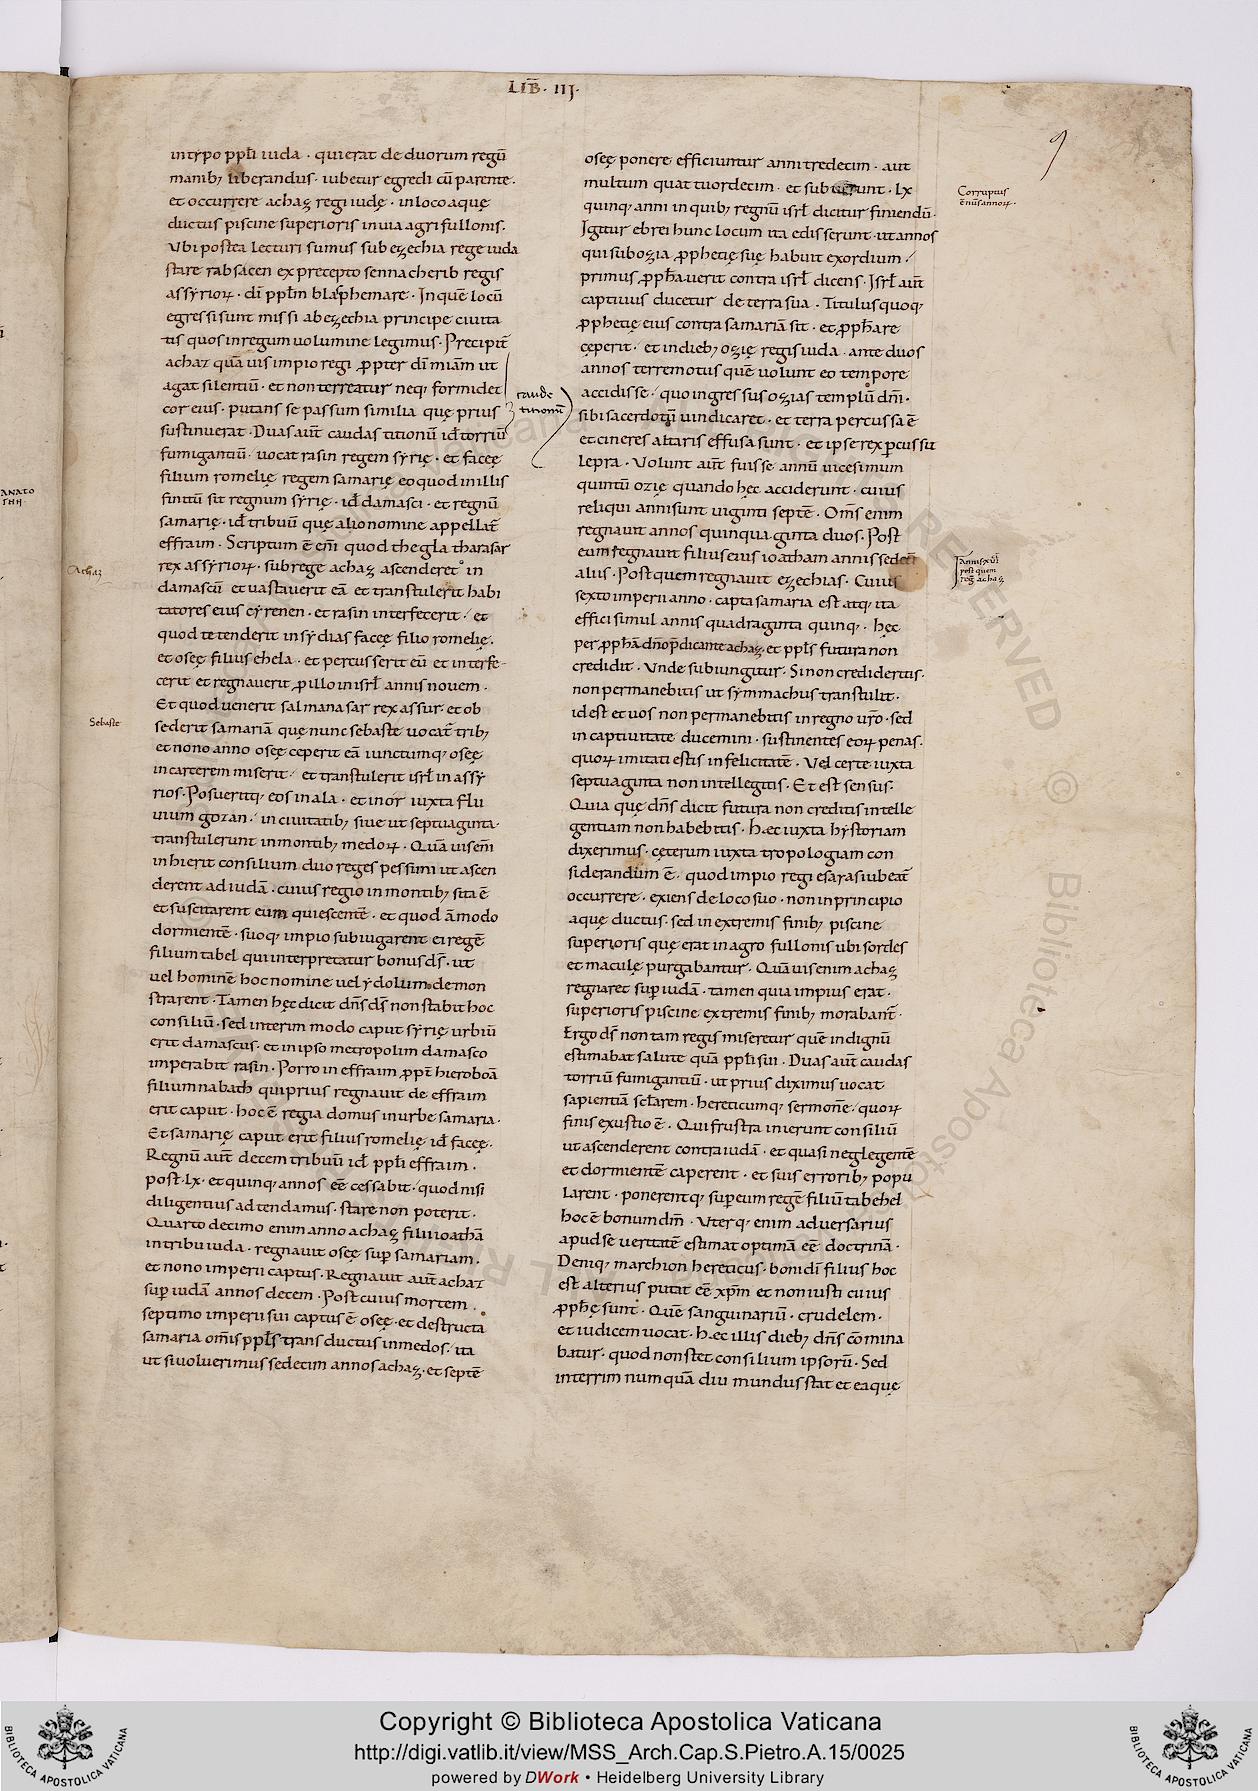 LIB̅· III·
9
in typo ppl̅i iuda · qui erat de duorum regu̅
manib; liberandus · iubetur egredi cu̅ parente ·
et occurrere achaz regi iudę · in loco aquę
ductus piscine superioris in uia agri fullonis·
Vbi postea lecturi sumus sub ezechia rege iuda
stare rabsacen ex precepto sennacherib regis
assyrioꝝ · di̅ ppl̅m blasphemare · In que̅ locu̅
egressi sunt missi ab ezechia principe ciuita
tis quos in regum uolumine legimus· Precipit̅
achaz qua̅uis impio regi ꝓpter di̅ mi̅am ut
agat silentiu̅ · et non terreatur neq; formidet
cor eius · putans se passum similia quę prius
sustinuerat · Duas aut̅ caudas titionu̅ id̅ torriu̅
fumigantiu̅ · uocat rasin regem syrię · et faceę
filium romelię regem samarię eo quod in illis
finitu̅ sit regnum syrię · id̅ damasci · et regnu̅
samarię · id̅ tribuu̅ quę alio nomine appellat̅
effraim · Scriptum e̅ em̅ quod theglatharasar
rex assyrioꝝ · sub rege achaz ascenderet in
damascu̅ et uastauerit ea̅ et transtulerit habi
tatores eius cyrenen · et rasin interfecerit · et
quod tetenderit insydias faceę filio romelię ·
et oseę filius ehela · et percusserit eu̅ et interfe-
cerit et regnauerit ꝓ illo in isrl̅ annis nouem ·
Et quod uenerit salmanasar rex assur · et ob
sederit samaria̅ quę nunc sebaste uocat̅ trib;
et nono anno oseę ceperit ea̅ iunctumq; oseę
in carcerem miserit · et transtulerit isrl̅ in assy
rios · Posueritq; eos in ala · et in or iuxta flu
uium gozan · in ciuitatib; siue ut septuaginta·
transtulerunt in montib; medoꝝ · Qua̅uis em̅
inhierit consilium duo reges pessimi ut ascen
derent ad iuda̅ · cuius regio in montib; sita e̅
et suscitarent eum quiescente̅ · et quod a̅modo
dormiente̅ · suoq; impio subiugarent ei rege̅
filium tabel qui interpretatur bonus ds̅ · ut
uel homine̅ hoc nomine uel ydolum demon
strarent · Tamen hęc dicit dn̅s ds̅ non stabit hoc
consiliu̅ · sed interim modo caput syrię urbiu̅
erit damascus · et in ipso metropolim damasco
imperabit rasin · Porro in effraim ꝓpt̅ hieroboa̅
filium nabath qui prius regnauit de effraim
erit caput · hoc e̅ regia domus in urbe samaria ·
Et samarię caput erit filius romelię id̅ faceę ·
Regnu̅ aut̅ decem tribuu̅ id̅ ppl̅i effraim ·
post · lx · et quinq; annos ee̅ cessabit · quod nisi
diligentius adtendamus · stare non poterit ·
Quarto decimo enim anno achaz filii ioatha̅
in tribu iuda · regnauit oseę sup̲ samariam ·
et nono imperii captus · Regnauit aut̅ achaz
sup̲ iuda̅ annos decem · Post cuius mortem
septimo imperii sui captus e̅ oseę · et destructa
samaria om̅is ppl̅s transductus in medos · ita
ut si uoluerimus sedecim annos achaz · et septe̅
caude
titionu̅
Achaz
Sebaste
oseę ponere efficiuntur anni tredecim · aut
multum quattuordecim · et sub uerunt · lx
quinq; anni in quib; regnu̅ isrl̅ dicitur finiendu̅ ·
Igitur ebrei hunc locum ita edisserunt · ut annos
qui sub ozia ꝓphetię suę habuit exordium ·
primus ꝓph̅auerit contra isrl̅ dicens · Isrl̅ aut̅
captiuus ducetur de terra sua · Titulus quoq;
ꝓphetię eius contra samaria̅ sit · et ꝓph̅are
cęperit · et in dieb; ozię regis iuda · ante duos
annos terremotus que̅ uolunt eo tempore
accidisse · quo ingressus ozias templu̅ dn̅i ·
sibi sacerdotiu̅ uindicaret · et terra percussa e̅
et cineres altaris effusa sunt · et ipse rex ꝑcussus
lepra · Volunt aut̅ fuisse annu̅ uicesimum
quintu̅ ozię quando hęc acciderunt · cuius
reliqui anni sunt uiginti septe̅ · Om̅s enim
regnauit annos quinquaginta duos · Post
eum regnauit filius eius ioatham annis sedeci̅
alius · Post quem regnauit ezechias · Cuius
sexto imperii anno · capta samaria est atq; ita
effici simul annis quadraginta quinq; · hęc
per ꝓph̅a̅ dn̅o p̅dicante achaz · et ppl̅s futura non
credidit · Vnde subiungitur · Si non credideritis·
non permanebitis ut symmachus transtulit ·
id est et uos non permanebitis in regno ur̅o · sed
in captiuitate ducemini · sustinentes eoꝝ penas ·
quoꝝ imitati estis infelicitate̅ · Vel certe iuxta
septuaginta non intellegitis · Et est sensus·
Quia quę dn̅s dicit futura non creditis intelle
gentiam non habebitis · hęc iuxta hystoriam
dixerimus · cęterum iuxta tropologiam con
siderandum e̅ · quod impio regi esaias iubeat̅
occurrere · exiens de loco suo · non in principio
aquę ductus · sed in extremis finib; piscine
superioris quę erat in agro fullonis ubi sordes
et maculę purgabantur · Qua̅uis enim achaz
regnaret sup̲ iuda̅ · tamen quia impius erat ·
superioris piscine extremis finib; morabant̅ ·
Ergo ds̅ non tam regis miseretur que̅ indignu̅
estimabat salute qua̅ ppl̅i sui · Duas aut̅ caudas
torriu̅ fumigantiu̅ · ut prius diximus uocat
sapientia̅ scl̅arem · hereticumq; sermone̅ · quoꝝ
finis exustio e̅ · Qui frustra inierunt consiliu̅
ut ascenderent contra iuda̅ · et quasi neglegente̅
et dormiente̅ caperent · et suis errorib; popu
larent · ponerentq; super eum rege̅ filiu̅ tabehel
hoc e̅ bonum dm̅ · Vterq; enim aduersarius
apud se ueritate̅ estimat optima̅ ee̅ doctrina̅ ·
Deniq; marchion hereticus · boni di̅ filius hoc
est alterius putat ee̅ xp̅m et non iusti cuius
ꝓphę sunt · Que̅ sanguinariu̅ · crudelem ·
et iudicem uocat · hęc illis dieb; dn̅s co̅mina
batur · quod non stet consilium ipsoru̅ · Sed
interrim numqua̅ diu mundus stat et ea quę
Corruptus
e̅ nu̅s annoꝝ ·
Annis xvi
post quem
reg̅ achaz
ANATO
Copyright © Biblioteca Apostolica Vaticana
http://digi.vatlib.it/view/MSS_Arch.Cap.S.Pietro.A.15/0025
powered by DWork • Heidelberg University Library
BIBLIOTECA APOSTOLICA VATICANA
BIBLIOTECA APOSTOLICA VATICANA